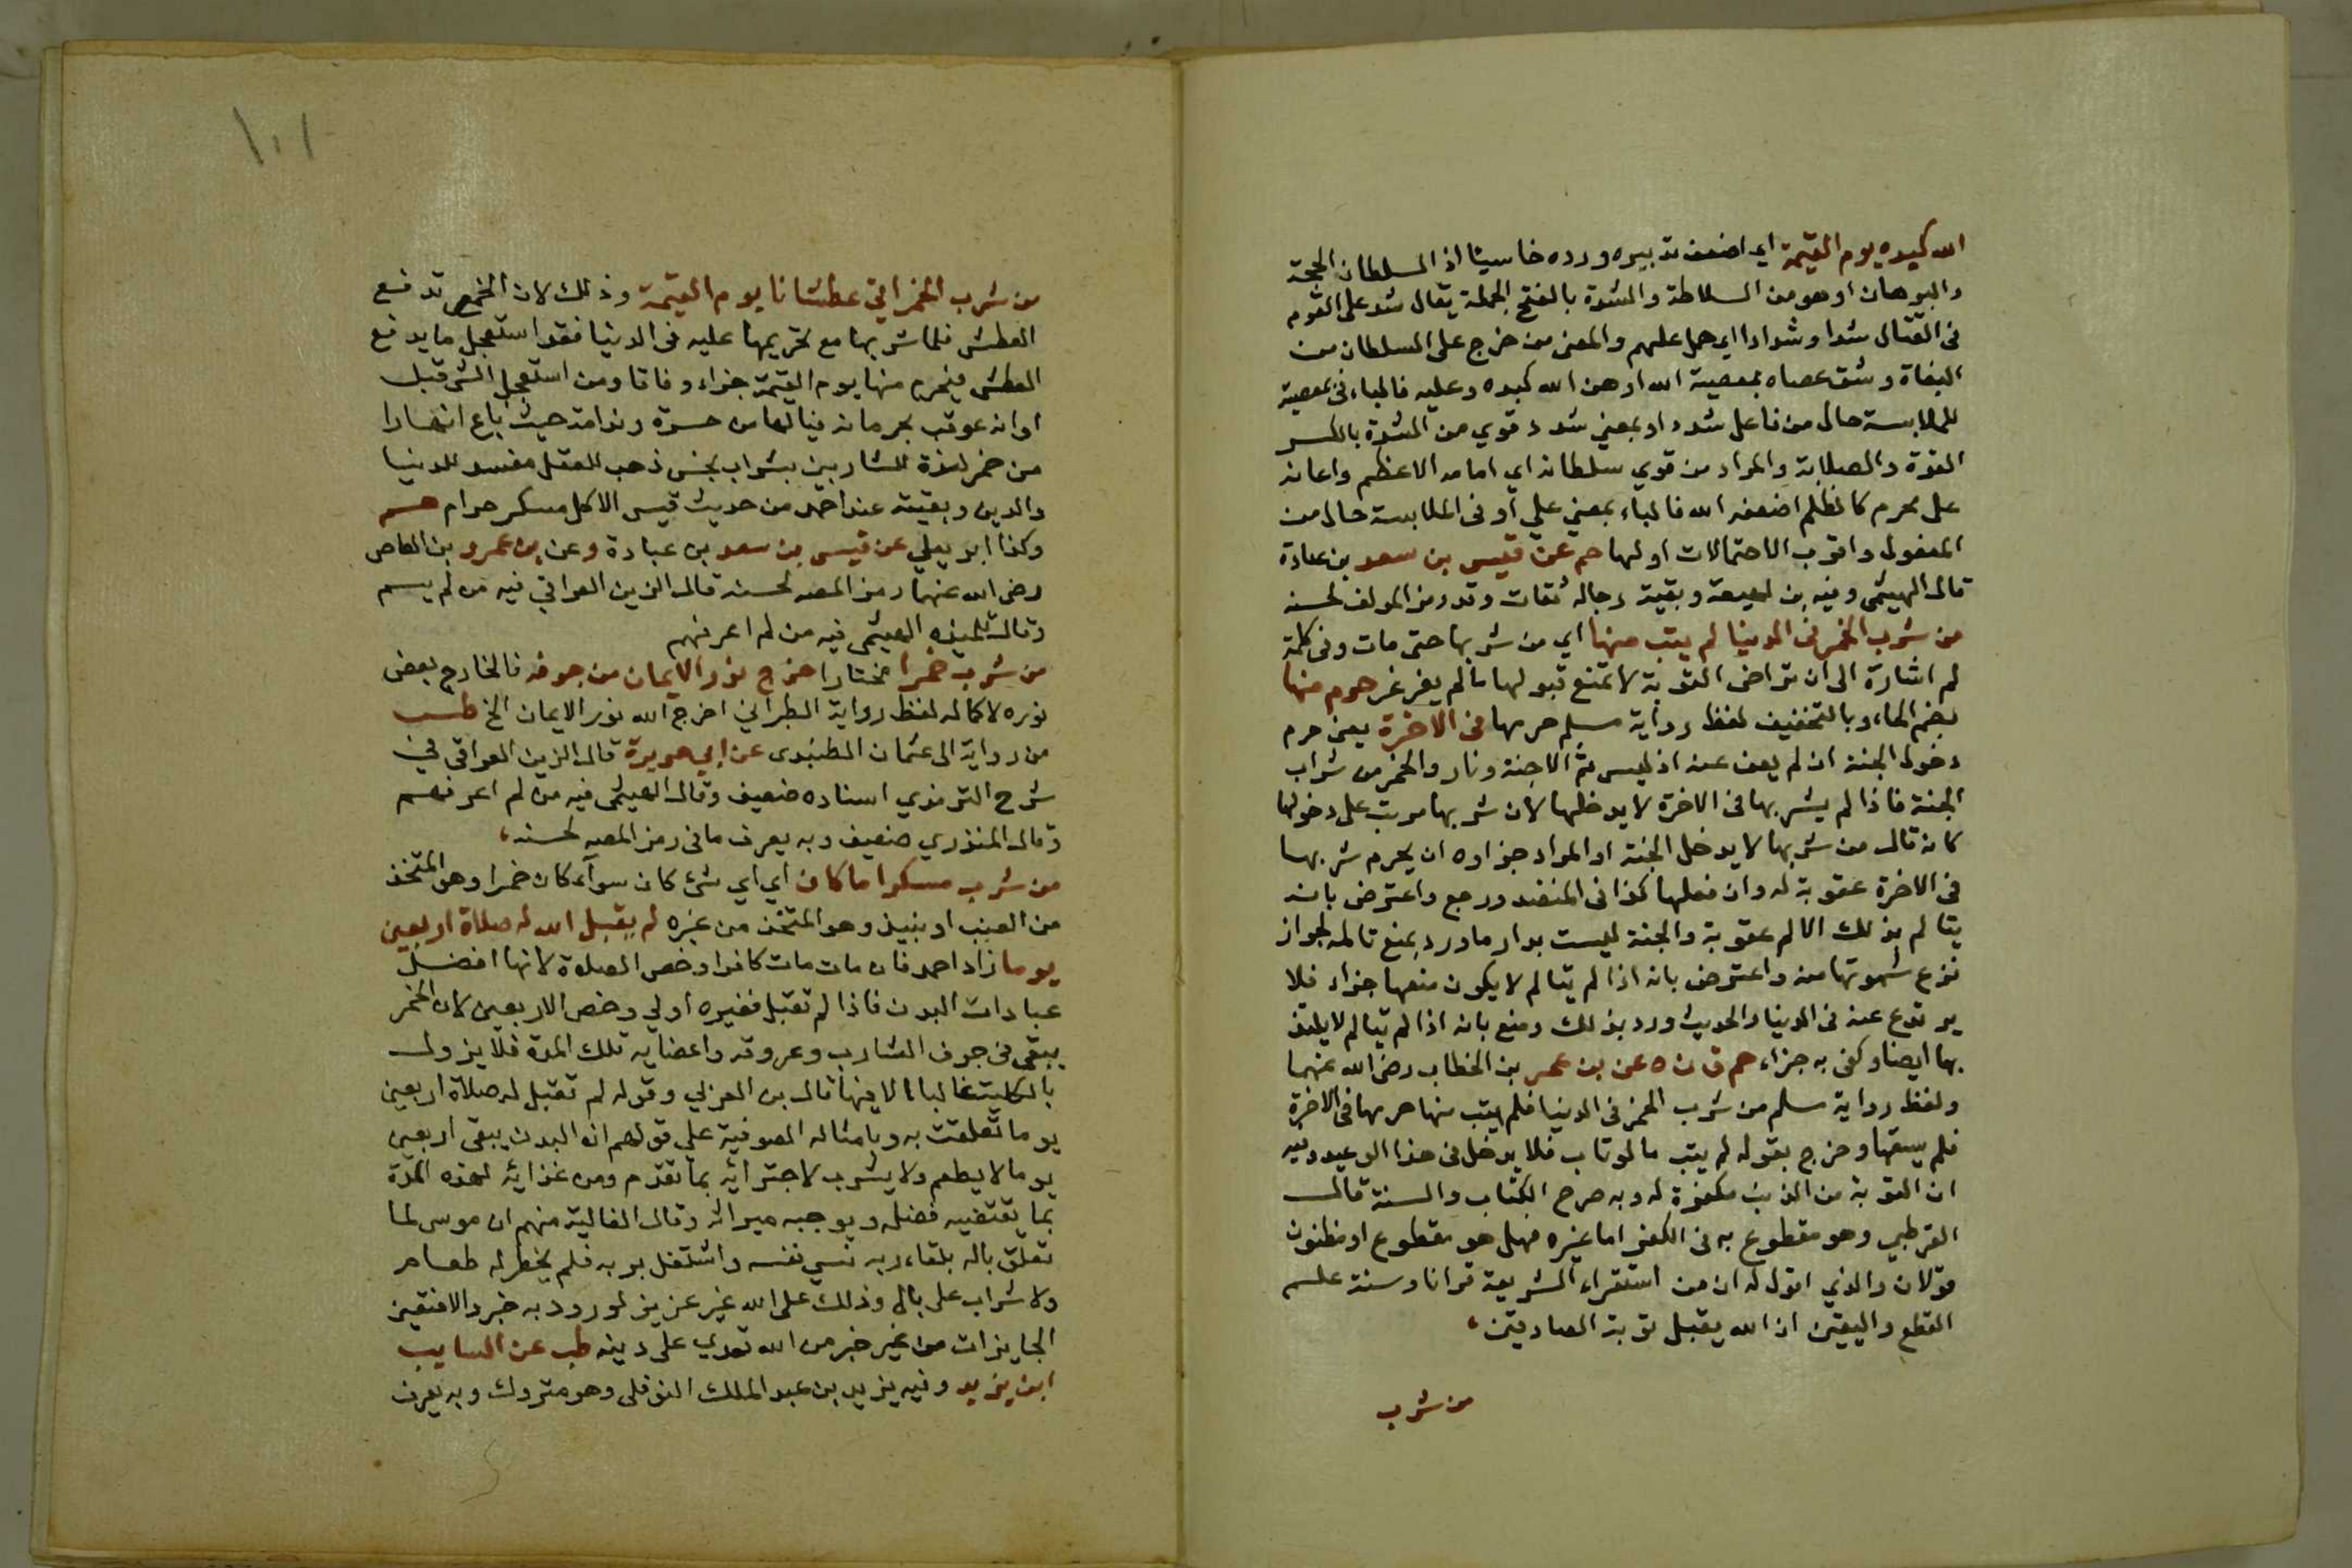 الله كيده يوم القيمة اي اضعف تدبيره ورده خاسيئا اذ السلطان الحجة
والبرهان او هو من السلاطة والشدة بالفتح الحملة يقال شد على القوم
فى القتال شدا وشدادا اي حمل عليهم والمعنى من خرج على السلطان من
البغاة وشق عصاه بمعصية الله اوهن الله كيده وعليه فالباء فى بمعصية
للملابسة حال من فاعل شدد او بمعني شدد قوي من الشدة بالكسر
القوة والصلابة والمراد من قوي سلطانه اي امامه الاعظم واعانه
على محرم كالظلم اضعفه الله فالباء بمعني علي أو فى الملابسة حال من
المفعول واقرب الاحتمالات اولها حم عن قيس بن سعد بن عبادة
قال الهيثمى وفيه بن لهيعة وبقية رجاله ثقات وقد رمز المولف لحسنه
من شرب الخمر فى الدنيا لم يتب منها اي من شربها حتى مات وفى كلمة
لم اشارة الى ان تراخى التوبة لا تمنع قبولها مالم يغرغر حرم منها
بضم الحاء وبالتخفيف لفظ رواية مسلم حرمها فى الاخرة يعنى حرم
دخول الجنة ان لم يعف عنه اذ ليس ثم الا جنة ونار والخمر من شراب
الجنة فاذا لم يشربها فى الاخرة لا يدخلها لان شربها مرتب على دخولها
كانه قال من شربها لا يدخل الجنة او المراد جزاوه ان يحرم شربها
فى الاخرة عقوبة له وان فعلها كذا فى المنضد ورجع واعترض بانه
يتالم بذلك الالم عقوبة والجنة ليست بدارها ورد بمنع تالمه لجواز
نزع شهوتها منه واعترض بانه اذا لم يتالم لا يكون منعها جزاء فلا
يرتدع عنه فى الدنيا والحديث ورد بذلك ومنع بانه اذا لم يتالم لا يلتذ
بها ايضا وكفى به جزاء حم ق ن ه عن بن عمر بن الخطاب رضى الله عنهما
ولفظ رواية مسلم من شرب الخمر فى الدنيا فلم يتب منها حرمها فى الاخرة
فلم يسقها وخرج بقوله لم يتب ما لو تاب فلا يدخل فى هذا الوعيد وفيه
ان التوبة من الذنب مكفرة له وبه صرح الكتاب والسنة قال
القرطبي وهو مقطوع به فى الكفر اما غيره فهل هو مقطوع او مظنون
قولان والذي اقول له ان من استقراء الشريعة قرانا وسنة علم
القطع واليقين ان الله يقبل توبة الصادقين،
من شرب
١٠١
من شرب الخمر اتى عطشانا يوم القيمة وذلك لان الخمر تدفع
العطش فلما شربها مع تحريمها عليه فى الدنيا فقد استعجل ما يدفع
العطش فيحرم منها يوم القيمة جزاء وفاقا ومن استعجل الشى قبل
اوانه عوقب بحرمانه فيا لها من حسرة وندامة حيث باع انهارا
من خمر لذة للشاربين بشراب نجس ذهب للعقل مفسد للدنيا
والدين وبقيته عند احمد من حديث قيس الا كل مسكر حرام حم
وكذا ابو يعلي عن قيس بن سعد بن عبادة وعن بن عمرو بن العاص
رضى الله عنهما رمز المصه لحسنه قال الزين العراقي فيه من لم يسم
وقال تلميذه الهيثمى فيه من لم اعرفهم
من شرب خمرا مختارا خرج نور الايمان من جوفه فالخارج بعض
نوره لا كماله لفظ رواية الطبراني اخرج الله نور الايمان الخ طس
من رواية الى عثمان الطنبذى عن ابي هريرة قال الزين العراقى في
شرح الترمذي اسناده ضعيف وقال الهيثمى فيه من لم اعرفهم
وقال المنذري ضعيف وبه يعرف ما فى رمز المصه لحسنه،
من شرب مسكرا ما كان اي اي شئ كان سوآء كان خمرا وهو المتخذ
من العنب او نبيذ وهو المتخذ من غيره لم يقبل الله له صلاة اربعين
يوما زاد احمد فان مات مات كافرا وخص الصلاة لانها افضل
عبادات البدن فاذا لم تقبل فغيره اولي وخص الاربعين لان الخمر
يبقى فى جوف الشارب وعروقه واعضايه تلك المدة فلا يزول
بالكلية غالبا الا فيها قال بن العربي وقوله لم تقبل له صلاة اربعين
يوما تعلقت به وبامثاله الصوفية علي قولهم ان البدن يبقى اربعين
يوما لا يطعم ولا يشرب لاجترائه بما تقدم ومن غذائه لهذه المدة
بما يقتضيه فضله ويوجبه ميراثه وقال الغالية منهم ان موسى لما
تعلق باله بلقاء ربه نسي نفسه واشتغل بربه فلم يخطر له طعام
ولا شراب على بال وذلك على الله غير عزيز لو ورد به خبر والا فتعيين
الجايزات من غير خبر من الله تعدي على دينه طب عن السايب
ابن يزيد وفيه يزيد بن عبد الملك النوفلى وهو متروك وبه يعرف